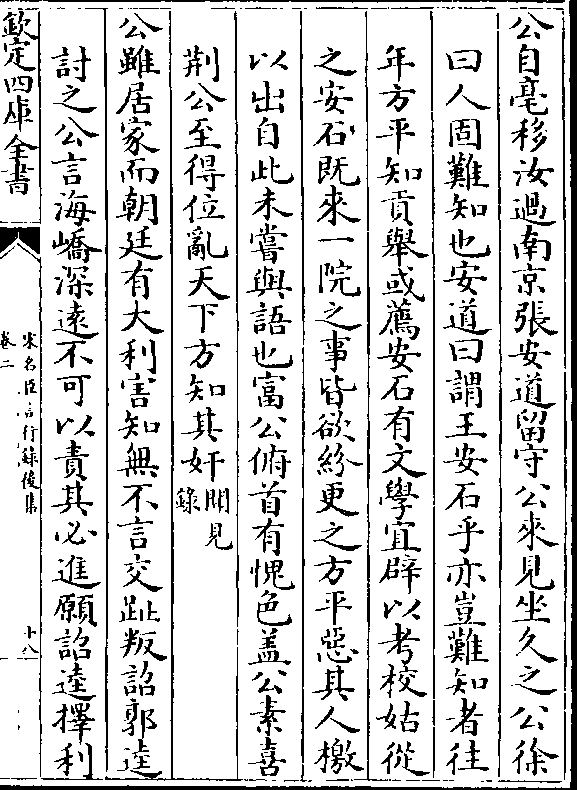 公自亳移汝過南京張安道留守公來見坐久之公徐
曰人固難知也安道曰謂王安石乎亦豈難知者往
年方平知貢舉或薦安石有文學宜辟以考校姑從
之安石既來一院之事皆欲紛更之方平惡其人檄
以出自此未嘗與語也富公俯首有愧色盖公素喜
荆公至得位亂天下方知其奸聞見錄
公雖居家而朝廷有大利害知無不言交趾叛詔郭逵
討之公言海嶠深遠不可以責其必進願詔逵擇利
欽定四庫全書
宋名臣言行錄後集
卷二
十八